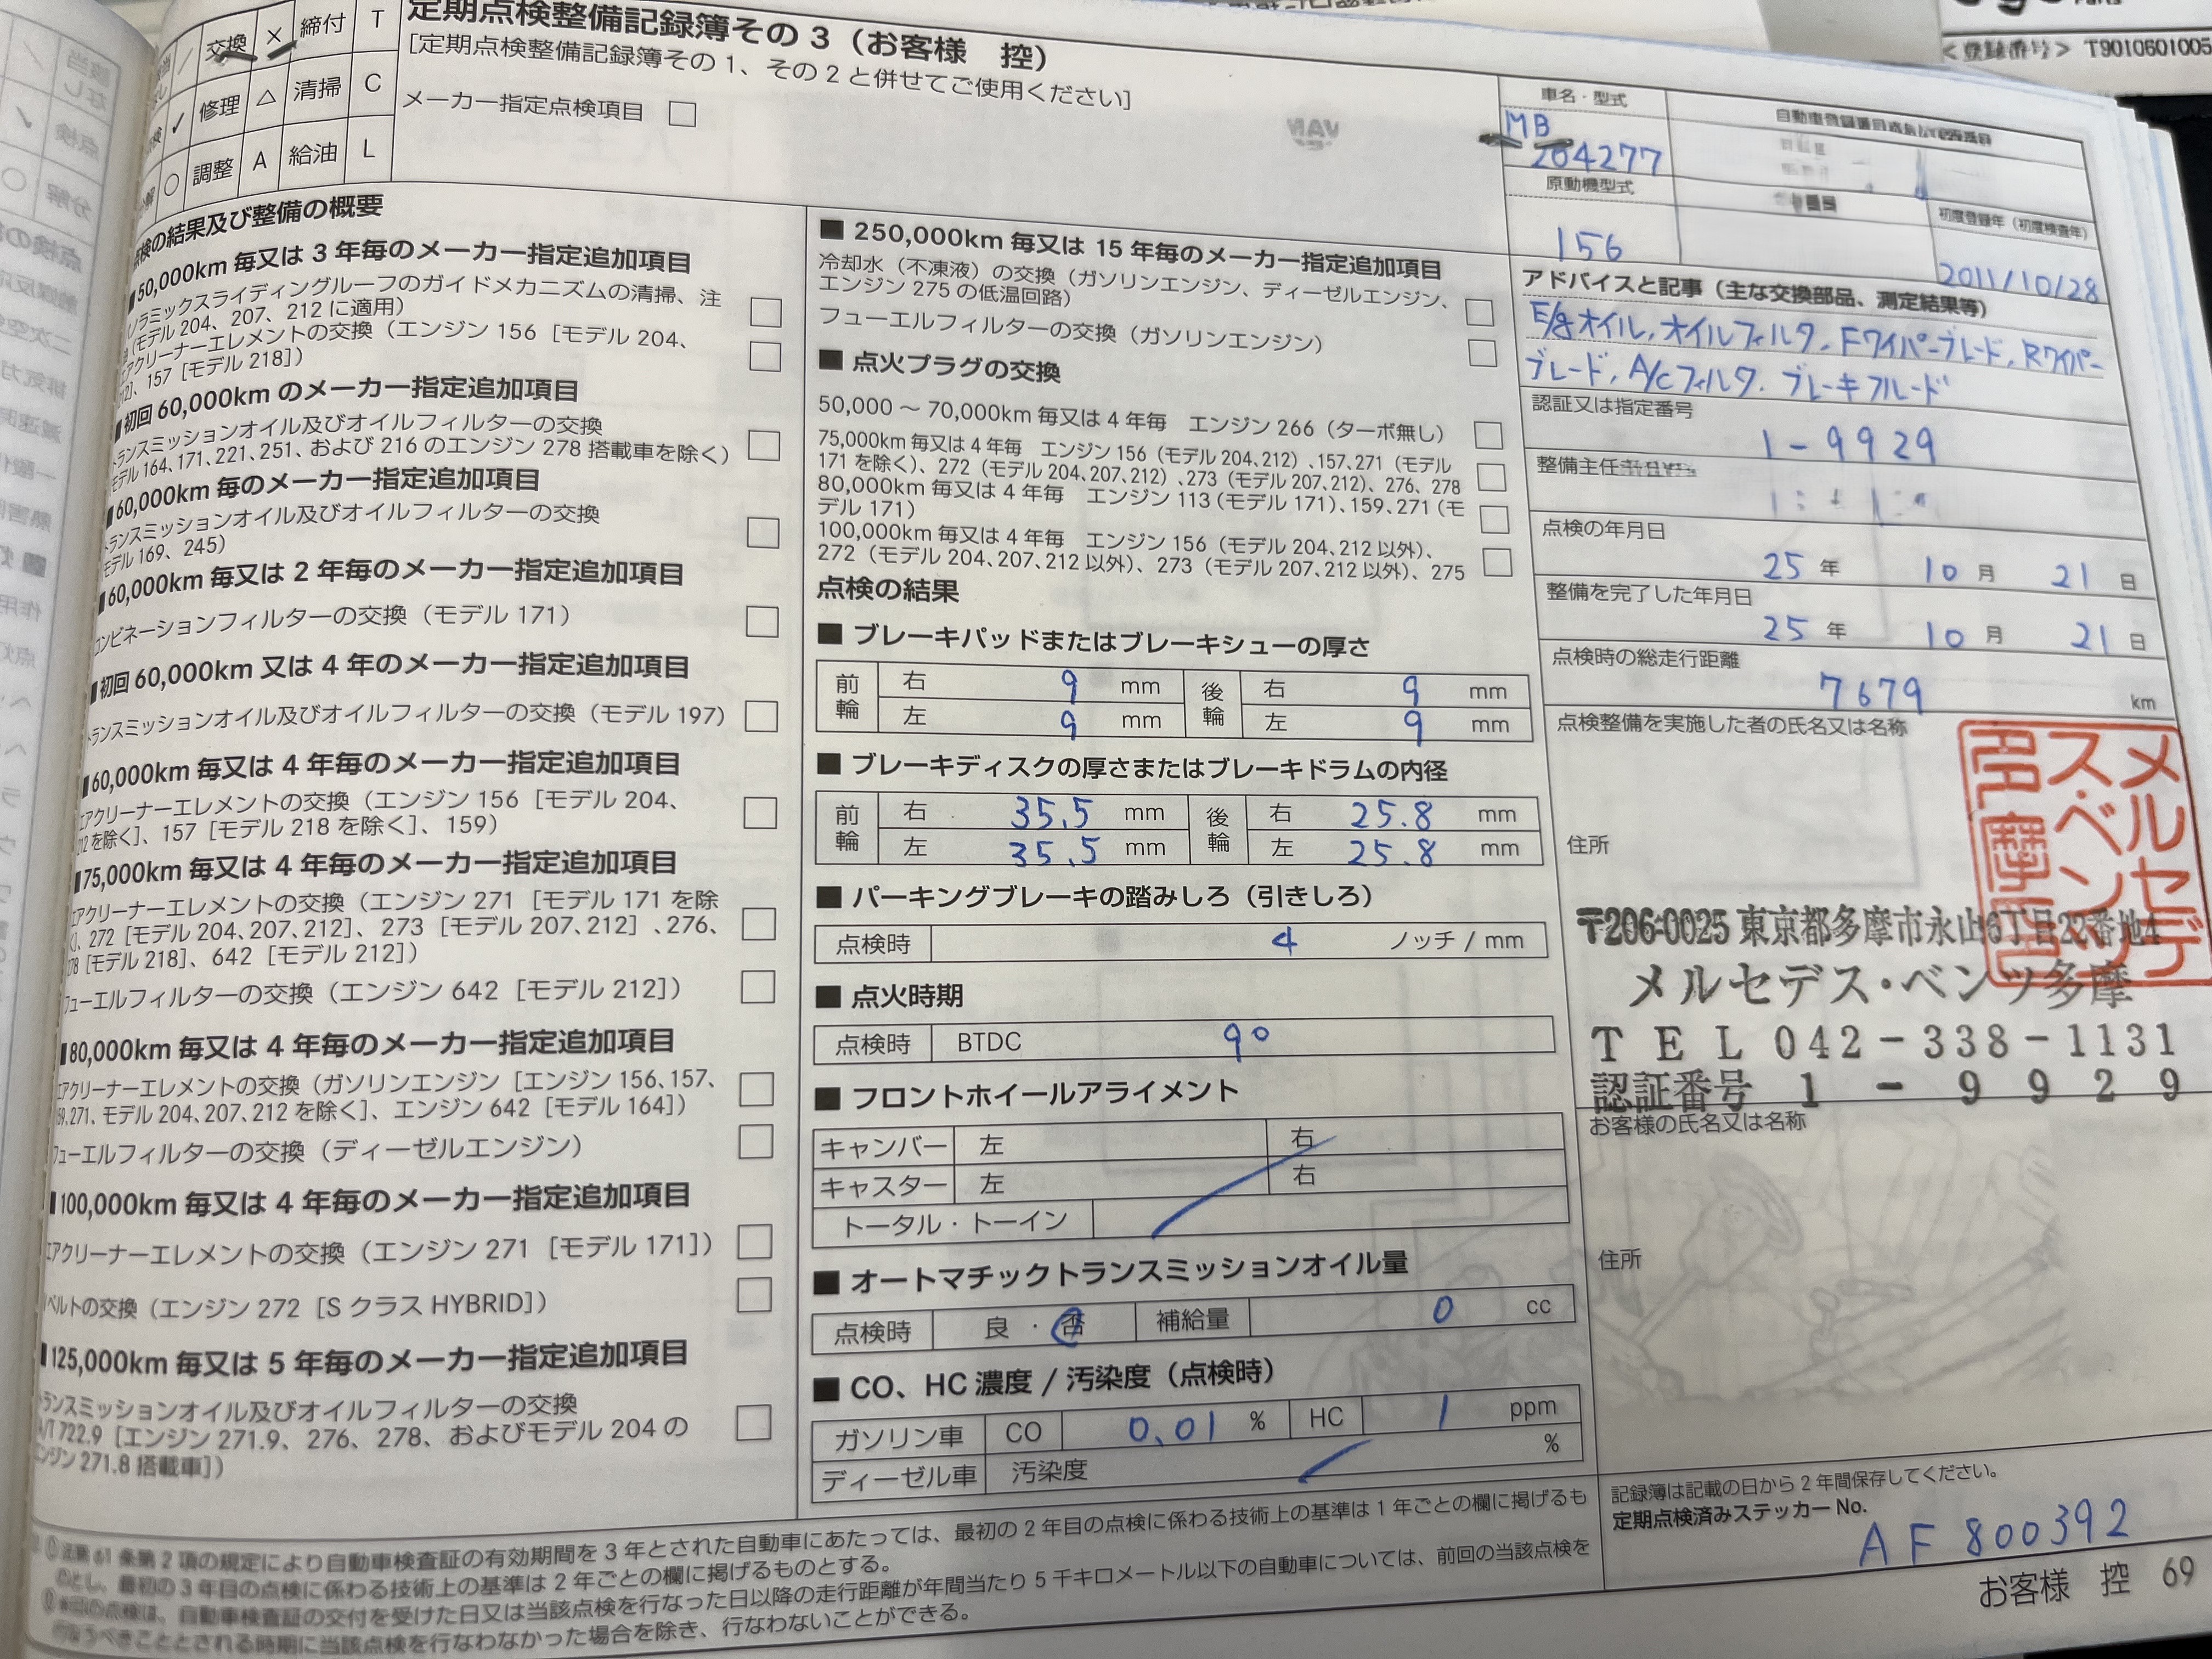 ＜登録番号＞ T9010601005
定期点検整備記録簿その３（お客様　控）
[定期点検整備記録簿その１、その２と併せてご使用ください]
メーカー指定点検項目
交換 × 締付 T
修理 △ 清掃 C
調整 A 給油 L
点検の結果及び整備の概要
■50,000km 毎又は 3 年毎のメーカー指定追加項目
パノラミックスライディングルーフのガイドメカニズムの清掃、注
（モデル 204、207、212 に適用）
エアクリーナーエレメントの交換（エンジン 156［モデル 204、
212］、157［モデル 218］）
■初回 60,000km のメーカー指定追加項目
トランスミッションオイル及びオイルフィルターの交換
モデル 164、171、221、251、および 216 のエンジン 278 搭載車を除く）
■60,000km 毎のメーカー指定追加項目
トランスミッションオイル及びオイルフィルターの交換
モデル 169、245）
■60,000km 毎又は 2 年毎のメーカー指定追加項目
コンビネーションフィルターの交換（モデル 171）
■初回 60,000km 又は 4 年のメーカー指定追加項目
トランスミッションオイル及びオイルフィルターの交換（モデル 197）
■60,000km 毎又は 4 年毎のメーカー指定追加項目
エアクリーナーエレメントの交換（エンジン 156［モデル 204、
212 を除く］、157［モデル 218 を除く］、159）
■75,000km 毎又は 4 年毎のメーカー指定追加項目
エアクリーナーエレメントの交換（エンジン 271［モデル 171 を除
く］、272［モデル 204、207、212］、273［モデル 207、212］、276、
278［モデル 218］、642［モデル 212］）
フューエルフィルターの交換（エンジン 642［モデル 212］）
■80,000km 毎又は 4 年毎のメーカー指定追加項目
エアクリーナーエレメントの交換（ガソリンエンジン［エンジン 156、157、
159、271、モデル 204、207、212 を除く］、エンジン 642［モデル 164］）
フューエルフィルターの交換（ディーゼルエンジン）
■100,000km 毎又は 4 年毎のメーカー指定追加項目
エアクリーナーエレメントの交換（エンジン 271［モデル 171］）
ベルトの交換（エンジン 272［S クラス HYBRID］）
■125,000km 毎又は 5 年毎のメーカー指定追加項目
トランスミッションオイル及びオイルフィルターの交換
A/T 722.9［エンジン 271.9、276、278、およびモデル 204 の
エンジン 271.8 搭載車］）
■ 250,000km 毎又は 15 年毎のメーカー指定追加項目
冷却水（不凍液）の交換（ガソリンエンジン、ディーゼルエンジン、
エンジン 275 の低温回路）
フューエルフィルターの交換（ガソリンエンジン）
■ 点火プラグの交換
50,000 ～ 70,000km 毎又は 4 年毎　エンジン 266（ターボ無し）
75,000km 毎又は 4 年毎　エンジン 156（モデル 204、212）、157、271（モデル
171 を除く）、272（モデル 204、207、212）、273（モデル 207、212）、276、278
80,000km 毎又は 4 年毎　エンジン 113（モデル 171）、159、271（モ
デル 171）
100,000km 毎又は 4 年毎　エンジン 156（モデル 204、212 以外）、
272（モデル 204、207、212 以外）、273（モデル 207、212 以外）、275
点検の結果
■ ブレーキパッドまたはブレーキシューの厚さ
前輪 右 9 mm 後輪 右 9 mm
左 9 mm 左 9 mm
■ ブレーキディスクの厚さまたはブレーキドラムの内径
前輪 右 35.5 mm 後輪 右 25.8 mm
左 35.5 mm 左 25.8 mm
■ パーキングブレーキの踏みしろ（引きしろ）
点検時 4 ノッチ / mm
■ 点火時期
点検時 BTDC 9°
■ フロントホイールアライメント
キャンバー 左 右
キャスター 左 右
トータル・トーイン
■ オートマチックトランスミッションオイル量
点検時 良・否 補給量 0 cc
■ CO、HC 濃度 / 汚染度（点検時）
ガソリン車 CO 0.01 % HC 1 ppm
ディーゼル車 汚染度 %
車名・型式
MB
204277
原動機型式
156
初度登録年（初度検査年）
2011/10/28
アドバイスと記事（主な交換部品、測定結果等）
E/gオイル、オイルフィルタ、Fワイパーブレード、Rワイパー
ブレード、A/Cフィルタ、ブレーキフルード
認証又は指定番号
1-9929
整備主任
点検の年月日
25 年 10 月 21 日
整備を完了した年月日
25 年 10 月 21 日
点検時の総走行距離
7679 km
点検整備を実施した者の氏名又は名称
メルセデス・ベンツ多摩
住所
〒206-0025 東京都多摩市永山6丁目22番地4
メルセデス・ベンツ多摩
TEL 042-338-1131
認証番号 1-9929
お客様の氏名又は名称
住所
記録簿は記載の日から 2 年間保存してください。
定期点検済みステッカー No.
AF 800392
① 法第 61 条第 2 項の規定により自動車検査証の有効期間を 3 年とされた自動車にあたっては、最初の 2 年目の点検に係わる技術上の基準は 1 年ごとの欄に掲げるも
のとし、最初の 3 年目の点検に係わる技術上の基準は 2 年ごとの欄に掲げるものとする。
の点検は、自動車検査証の交付を受けた日又は当該点検を行なった日以降の走行距離が年間当たり 5 千キロメートル以下の自動車については、前回の当該点検を
行なうべきこととされる時期に当該点検を行なわなかった場合を除き、行なわないことができる。
お客様　控　69